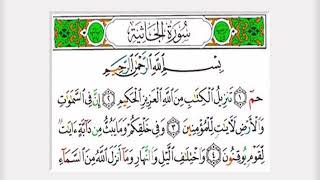 سُورَةُ الجَاثِيَةِ
بِسْمِ اللَّهِ الرَّحْمَٰنِ الرَّحِيمِ
حمٓ ﴿١﴾ تَنزِيلُ الْكِتَٰبِ مِنَ اللَّهِ الْعَزِيزِ الْحَكِيمِ ﴿٢﴾ إِنَّ فِي السَّمَٰوَٰتِ
وَالْأَرْضِ لَآيَٰتٍ لِّلْمُؤْمِنِينَ ﴿٣﴾ وَفِي خَلْقِكُمْ وَمَا يَبُثُّ مِن دَآبَّةٍ ءَايَٰتٌ
لِّقَوْمٍ يُوقِنُونَ ﴿٤﴾ وَاخْتِلَٰفِ الَّيْلِ وَالنَّهَارِ وَمَآ أَنزَلَ اللَّهُ مِنَ السَّمَآءِ